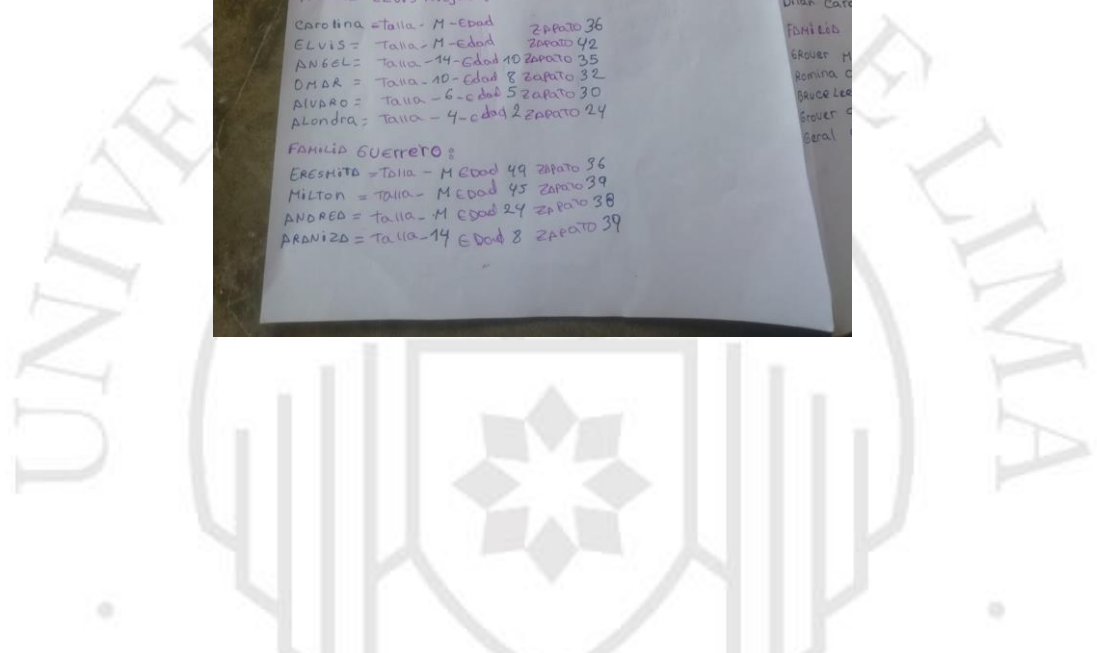 Carolina = Talla - M - Edad Zapato 36
ELVIS = Talla - M - Edad Zapato 42
ANGEL = Talla - 14 - Edad 10 Zapato 35
OMAR = Talla - 10 - Edad 8 Zapato 32
Alvaro = Talla - 6 - edad 5 Zapato 30
Alondra = Talla - 4 - edad 2 Zapato 24
Familia Guerrero:
ERESMITA = Talla - M Edad 49 Zapato 36
Milton = Talla - M Edad 45 Zapato 39
ANDREA = Talla - M Edad 24 Zapato 38
ARANIZA = Talla - 14 Edad 8 Zapato 39
Familia
Grover M
Romina C
Bruce Lee
Grover
Geral
LIMA